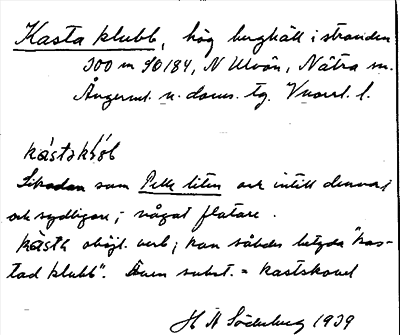 Kasta klubb, hög berghäll i stranden
300 m SO 184, N Ulvön, Nätra sn.
Ångerml. n. doms. tg. Vnorrl. l.
kàstaklòb
Likadan som Pelle liten och intill denna
och sydligare; något flatare.
kàsta oböjl. verb; kan således betyda "kas-
tad klubb". Även subst. = kastskovel
H N Söderberg 1939